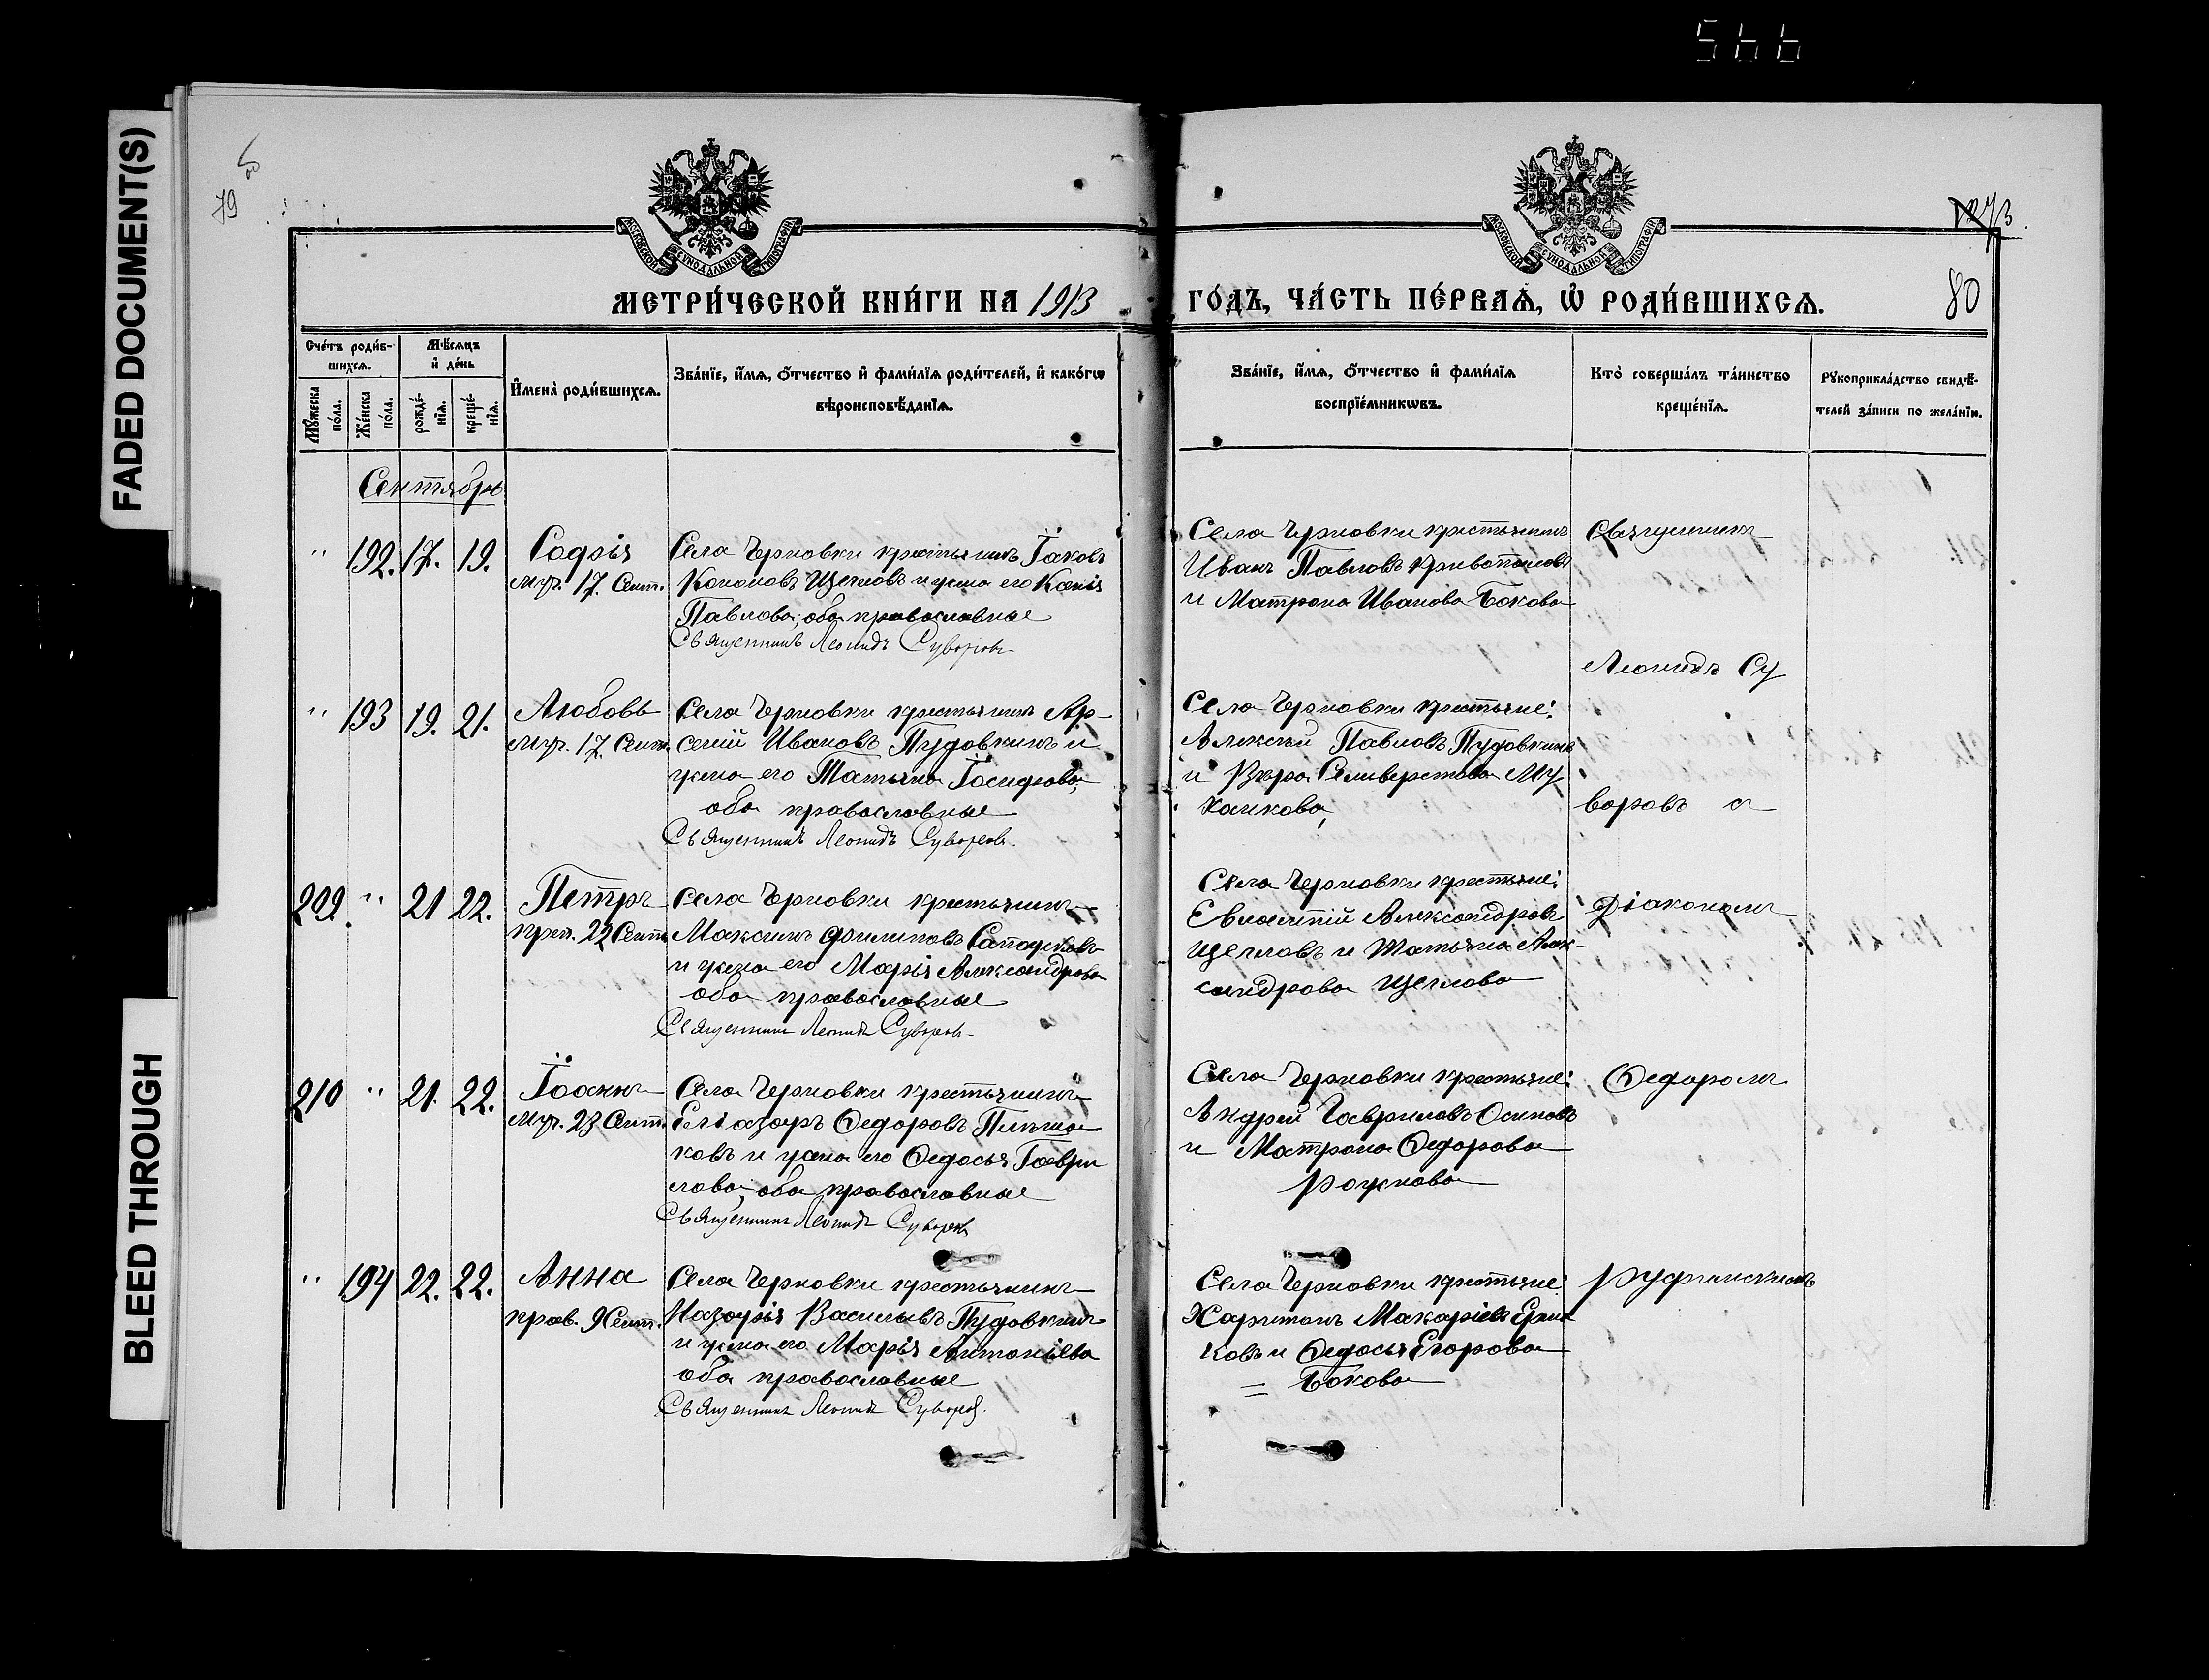 566
FADED DOCUMENT(S)
BLEED THROUGH
79 об
80
МОСКОВСКОЙ СѴНОДАЛЬНОЙ ТИПОГРАФІИ
МОСКОВСКОЙ СѴНОДАЛЬНОЙ ТИПОГРАФІИ
МЕТРИ́ЧЕСКОЙ КНИ́ГИ НА 1913 ГО́ДЪ, ЧА́СТЬ ПЕ́РВАѦ, Ѽ РОДИ́ВШИХСѦ.
Сче́тъ роди́в-
шихсѧ.
Мꙋ́жеска по́ла.
Же́нска по́ла.
Мѣ́сѧцъ
и҆ де́нь
рожде́-
нїѧ.
креще́-
нїѧ.
И҆мена̀ роди́вшихсѧ.
Зва́нїе, и҆́мѧ, ѻ҆́тчество и҆ фами́лїѧ роди́телей, и҆ како́гѡ
вѣроисповѣ́данїѧ.
Зва́нїе, и҆́мѧ, ѻ҆́тчество и҆ фами́лїѧ
воспрїе́мникѡвъ.
Кто̀ соверша́лъ та́инство
креще́нїѧ.
Рꙋкоприкла́дство свидѣ́-
телей за́писи по жела́нїю.
Сентябрь
" 192. 17. 19. Софія
муч. 17. Сент.
Села Черновки крестьянинъ Іаковъ
Кононовъ Щегловъ и жена его Ксенія
Павлова; оба православные
Священникъ Леонидъ Суворовъ
Села Черновки крестьянинъ
Иванъ Павловъ Кривопаловъ
и Матрона Иванова Бокова
Священникъ
Леонидъ Су
" 193 19. 21. Любовь
муч. 17. Сент.
Села Черновки крестьянинъ Ар-
сеній Ивановъ Пудовкинъ и
жена его Татьяна Іосифова;
оба православные
Священникъ Леонидъ Суворовъ.
Села Черновки крестьяне:
Алексѣй Павловъ Пудовкинъ
и Вѣра Селиверстова Му
ханкова,
воровъ съ
209. " 21 22. Петръ
Села Черновки крестьянинъ
Максимъ Филиповъ Сапожковъ
и жена его Марія Александрова
оба православные
Священникъ Леонидъ Суворовъ
Села Черновки крестьяне:
Евлампій Александровъ
Щегловъ и Татьяна Алек-
сандрова Щеглова
Діакономъ
210 " 21. 22. Іоаннъ
муч. 23 Сент.
Села Черновки крестьянинъ
Еліазаръ Ѳедоровъ
ковъ и жена его Ѳедосья Гаври
лова; оба православные
Священникъ Леонидъ Суворовъ
Села Черновки крестьяне:
Андрей Гавриловъ Осиповъ
и Матрона Ѳедорова
Рожнова
Ѳедоромъ
" 194 22. 22. Анна
прав. 9 Сент.
Села Черновки крестьянинъ
Назарія Васильевъ Пудовкинъ
и жена его Марія Антоніева
оба православные
Священникъ Леонидъ Суворовъ.
Села Черновки крестьяне:
Харитонъ Макаріевъ
ковъ и Ѳедосья Егорова
= Бокова
Руфимскимъ